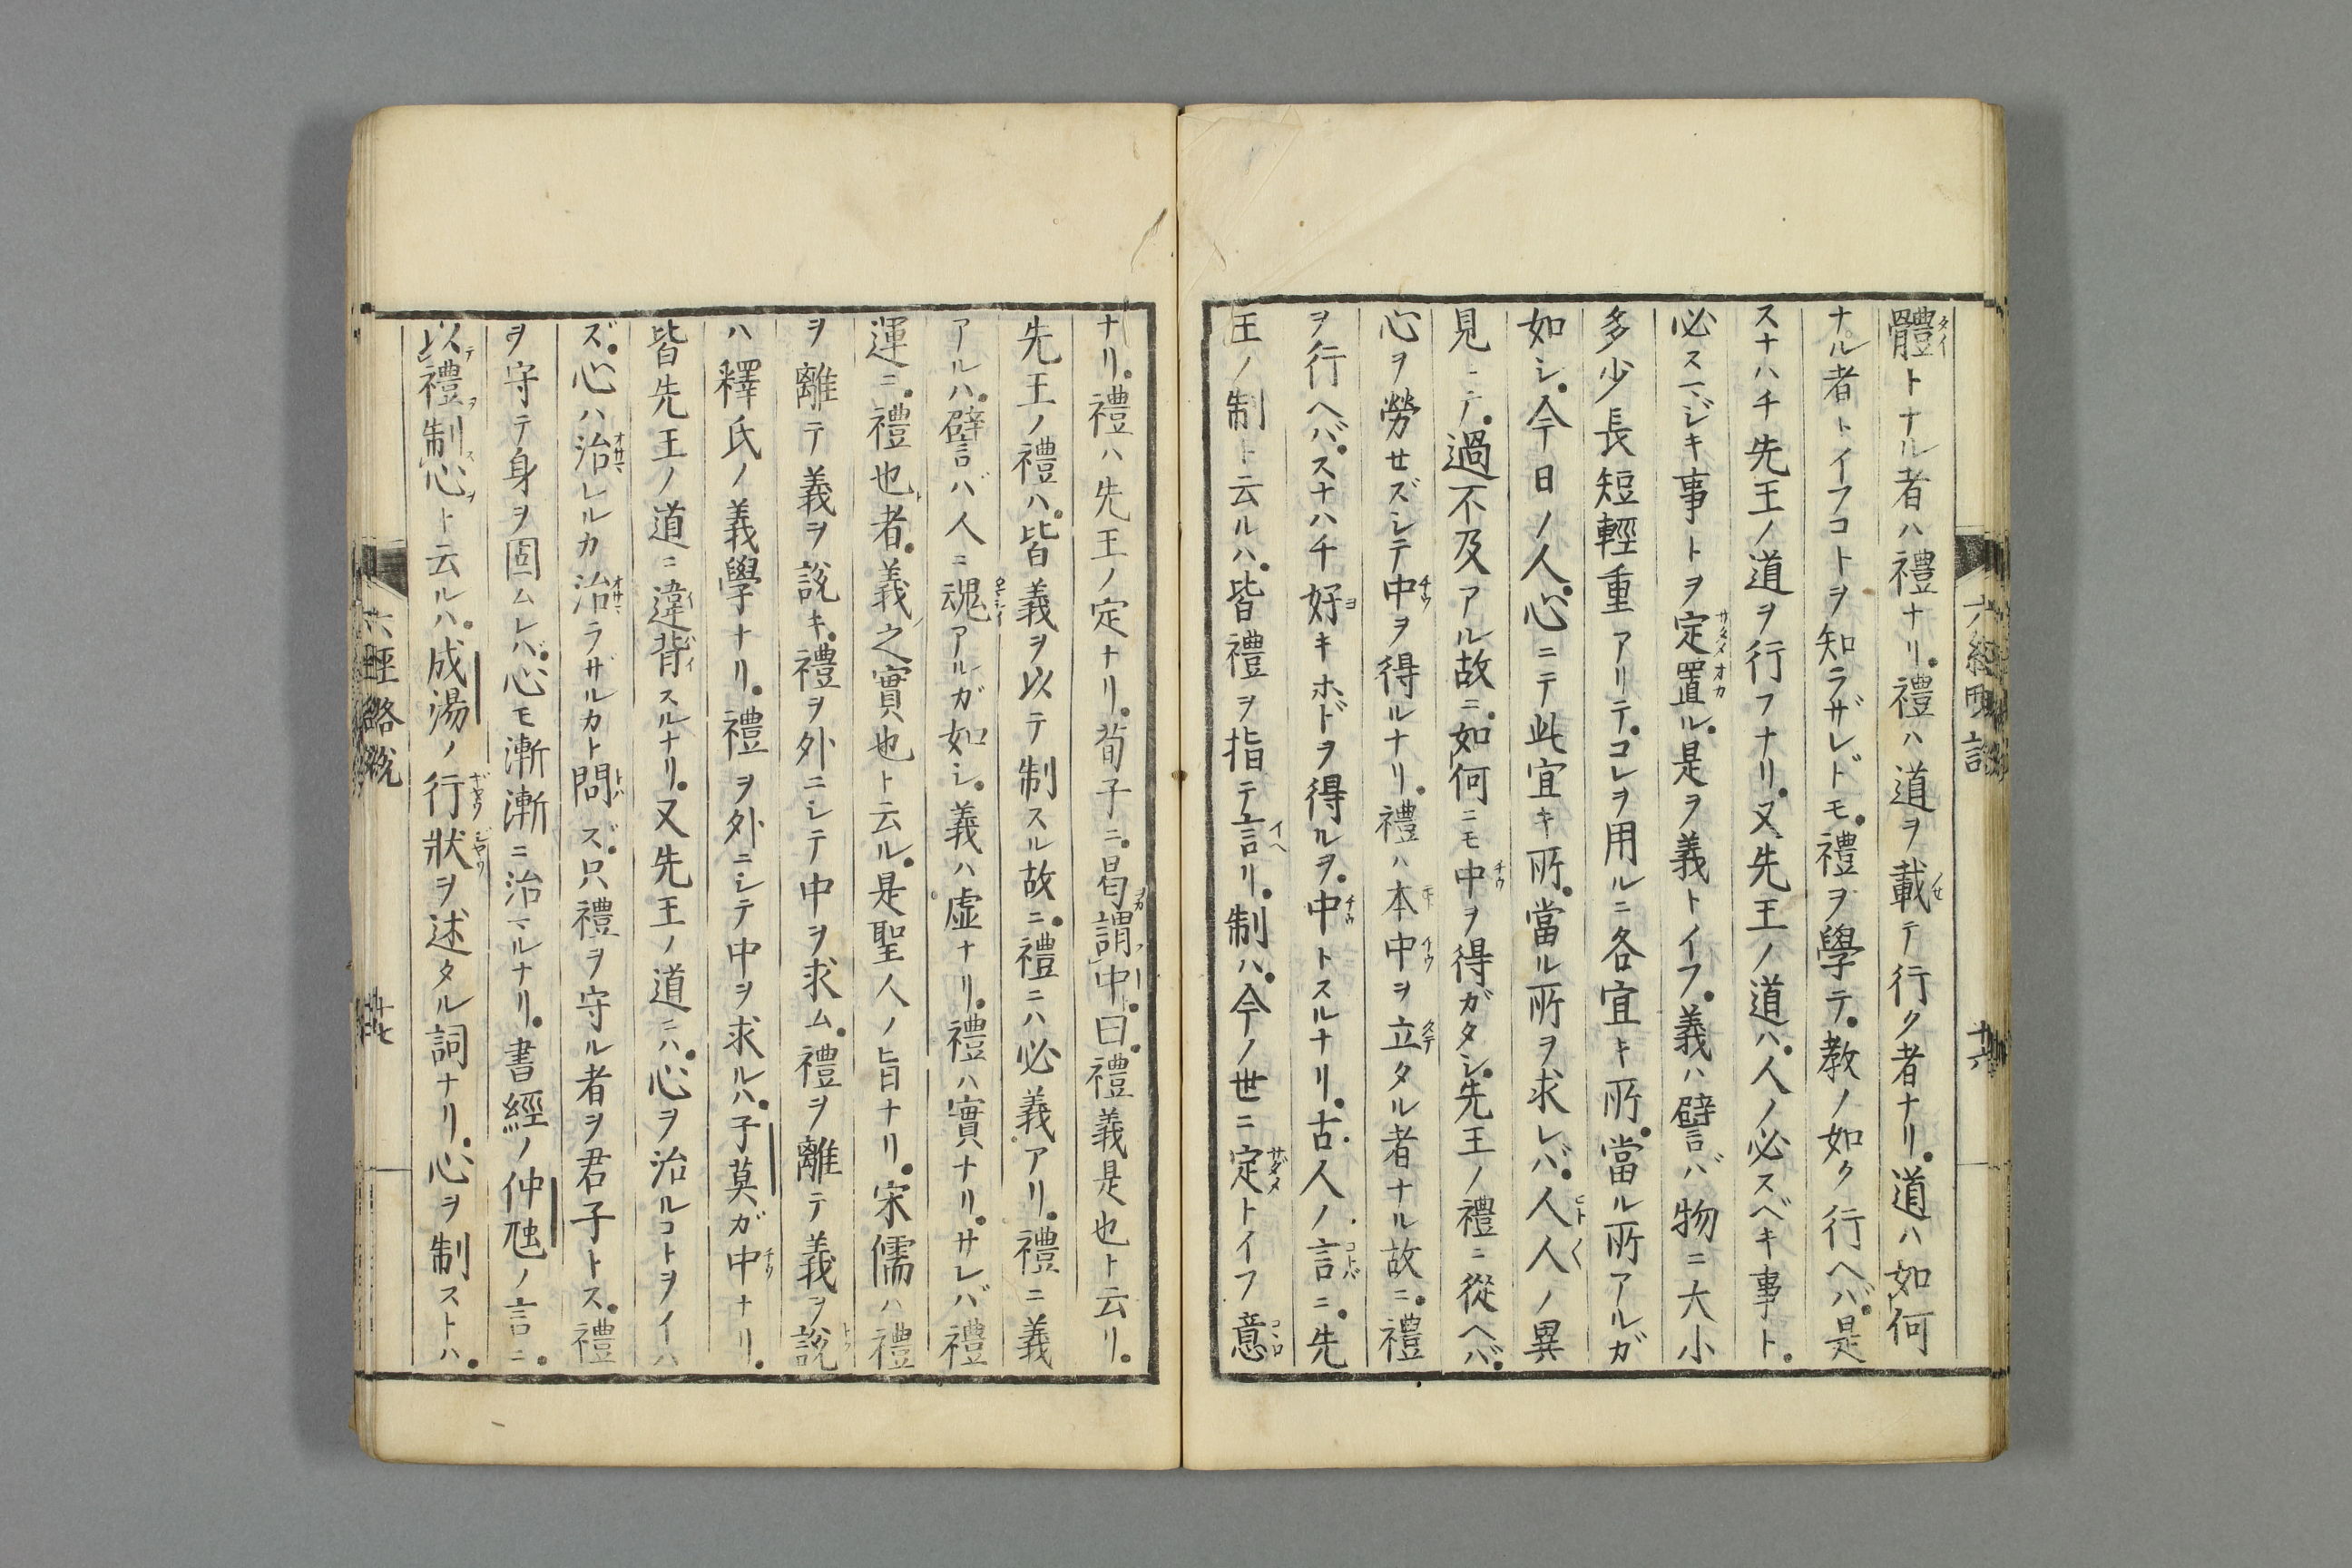 體トナル者ハ禮ナリ。禮ハ道ヲ載テ行ク者ナリ。道ハ如何
ナル者トイフコトヲ知ラザレドモ。禮ヲ學テ。教ノ如ク行ヘバ。是
スナハチ先王ノ道ヲ行フナリ。又先王ノ道ハ。人ノ必スベキ事ト。
必スマジキ事トヲ定置ル。是ヲ義トイフ。義ハ譬バ物ニ大小
多少長短輕重アリテ。コレヲ用ルニ各宜キ所。當ル所アルガ
如シ。今日ノ人。心ニテ此宜キ所。當ル所ヲ求レバ。人人ノ異
見ニテ。過不及アル故ニ。如何ニモ中ヲ得ガタシ。先王ノ禮ニ從ヘバ。
心ヲ勞セズシテ中ヲ得ルナリ。禮ハ本中ヲ立タル者ナル故ニ。禮
ヲ行ヘバ。スナハチ好キホドヲ得ルヲ。中トスルナリ。古人ノ言ニ。先
王ノ制ト云ルハ。皆禮ヲ指テ言リ。制ハ。今ノ世ニ定トイフ意
ナリ。禮ハ先王ノ定ナリ。荀子ニ。曷謂中。曰。禮義是也ト云リ。
先王ノ禮ハ。皆義ヲ以テ制スル故ニ。禮ニハ必義アリ。禮ニ義
アルハ。譬バ人ニ魂アルガ如シ。義ハ虚ナリ。禮ハ實ナリ。サレバ禮
運ニ。禮也者。義之實也ト云ル。是聖人ノ旨ナリ。宋儒ハ禮
ヲ離テ義ヲ說キ。禮ヲ外ニシテ中ヲ求ム。禮ヲ離テ義ヲ說
ハ釋氏ノ義學ナリ。禮ヲ外ニシテ中ヲ求ルハ。子莫ガ中ナリ。
皆先王ノ道ニ違背スルナリ。又先王ノ道ニハ。心ヲ治ルコトヲイハ
ズ。心ハ治レルカ治ラザルカト問ズ。只禮ヲ守ル者ヲ君子トス。禮
ヲ守テ身ヲ固ムレバ。心モ漸漸ニ治マルナリ。書經ノ仲虺ノ言ニ。
以禮制心ト云ルハ。成湯ノ行狀ヲ述タル詞ナリ。心ヲ制ストハ。
六經略說